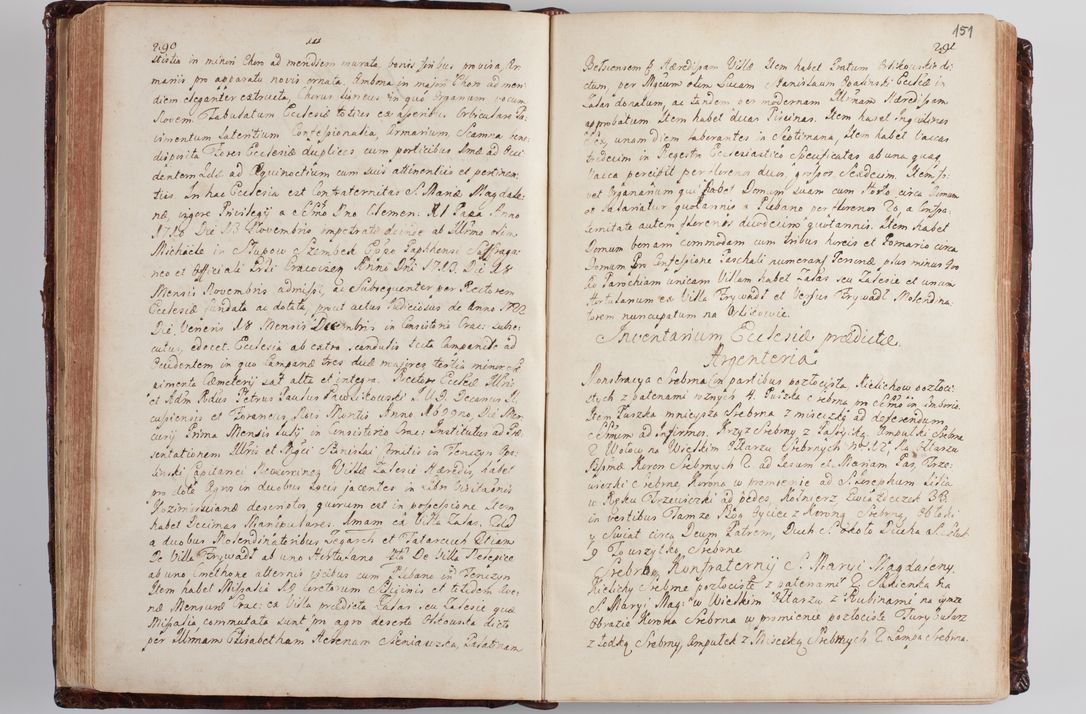 290
in minori Choro ad mendiem murata, bonis seribus provisa, Ar
mariis pro apparatu novis ornata. Ambona in majori Choro ad meri
diem eleganter extructa, Chorus ligneus in quo Organum vocum
Novem. Tabulatum Ecclesiæ totius ex asseribus Orbiculare Pa
vimentum Lateritium Confessionalia, Armarium, Scamna bene
disposita Fores Ecclesiæ duplices cum porticibus Unæ ad Occi
dentem ad Æquinoctium cum suis attinentiis et pertinen
tiis. In hac Ecclesia est Confraternitas S. Mariæ Magdale
næ, vigore Privilegij a SSmo Dno Clemen: XI Papa Anno
Die 13 Novembris impetrato deinde ab Illmo olim
Michaele in Słupow Szembek Eppo Paphensi Suffraga
neo et Officiali Grali Cracovien Anno Dni 1713. Die 28
Mensis Novembris admissi, ac Subsequenter per Rectorem
Ecclesiæ fundata ac dotata, prout actus Judiciosus de Anno
Die Veneris 18 Mensis Decembris in Consistorio Crac: subse
cutus, edocet. Ecclesia ab extra scandulis tecta Campanile ad
Occidentem in quo Campanæ tres duæ majores tertia minor
Cæmeterij sat alta et integra. Rector Ecclesiæ Illris
et Adm Rndus Petrus Paulus Pawlikowski J.U.D. Decanus
et Foraneus, Novi Montis Anno 1699no. Die Mer
curij Prima Mensis Julij in Consistorio Crac: Institutus ad Præ
sentationem Illris et Mgci Stanislai Comitis in Tenczyn
Capitanei Nowomiren Villæ Zalesie Hæredis, habet
pro dote Agros in duobus Locis jacentes in Libro Visitaonis
descriptos quorum est in possessione Item
habet Decimas Manipulares. Unam ex Villa Zalas,
a duobus Molendinatoribus Legarth et Tatarczuch Etiam
De Villa Frywałd ab uno Hortulano De Villa
ab uno Cmethone alternis vicibus cum Plebano in Tenczyn
Item habet Missalia 19 coretorum Siliginis et totidem Ave
næ Mensuræ Crac: ex Villa prædicta Zalas seu Zalesie quæ
Missalia commutata sunt pro agro deserto dicto
per Illmam Elisabetham Helenam Sieniawska, Palatinam
151
291
Belsensem H. Hæredissam Villæ Item habet Pratum di
ctum, per Mgcum olim Lucam Stanislaum Ecclesiæ in
Zalas donatum, ac tandem per modernam Illmam Hæredissam
approbatum. Item habet duas Piscinas. Item habet Inquilinos
Sex, unam diem laborantes in Septimana, Item habet Vaccas
tredecim in Regestro Ecclesiastico Specificatas ab una quaq
Vacca percipit per florenos duos, grossos Sexdecim. Item ha
bet Organarium qui habet Domum Suam cum Horto circa Domum
et Salariatur quotannis a Plebano per florenos 20, a Confra
ternitate autem florenos duodecim quotannis. Item habet
Domum bonam commodam cum tribus horeis et Pomario circa
Domum Pro Confessione Paschali numerant Personæ plus minus
Parochiam unicam Villam habet Zalas seu Zalesie et unum
Hortulanum ex Villa Frywałd et Versus Frywałd Molendina
torem nuncupatum na
Inventarium Ecclesiæ prædictæ.
Argenteria
Monstracya Srebrna in partibus pozłocista. Kielichow pozłoci
stych z patenami rożnych 4. Puszka srebrna pro SSmo in Ciborio.
Item Puszka mnieysza Srebrna z miseczką ad deferendum
SSmum ad Infirmos. Krzyż Srebrny z Passyiką. Ampułki Srebrne
2 Wotow na Wielkim Ołtarzu Srebrnych No 12, Na Ołtarzu
Bssmæ Koron Srebrnych 2. ad Jesum et Mariam Par, Trze
wiczki Srebrne, Korona w promienie ad S. Josephum Lilia
w Ręku Trzewiczki ad pedes, Kołnierz Gwiazdeczek 33
in vestibus Tamże Bog Oyciec z Koroną Srebrną, Obłoki
y Swiat circa Deum Patrem, Duch S. około
9 Srebrne
Srebro Konfraternij S. Maryi Magdaleny.
Kielichy Srebrne pozłociste z patenami 2. Sukienka na
S. Maryi Mag: w Wielkim Ołtarzu z Rubinami na tymże
Obrazie Korona Srebrna w promienie pozłociste Turybularz
z Łodką Srebrny, Ampułek z Miseczką Srebrnych 2 Lampa Srebrna.